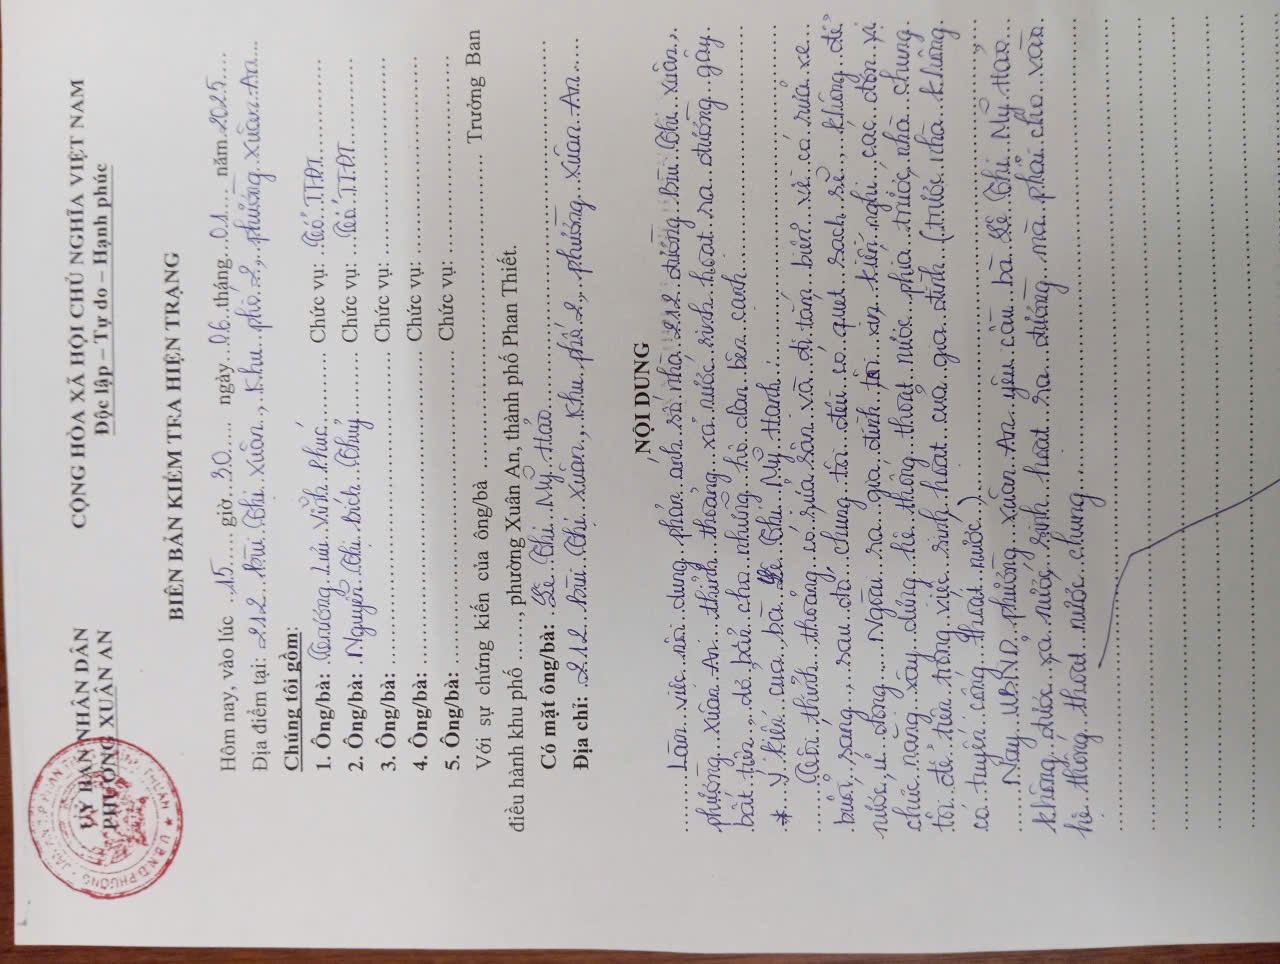 ỦY BAN NHÂN DÂN
PHƯỜNG XUÂN AN
CỘNG HÒA XÃ HỘI CHỦ NGHĨA VIỆT NAM
Độc lập – Tự do – Hạnh phúc
BIÊN BẢN KIỂM TRA HIỆN TRẠNG
Hôm nay, vào lúc ..15.... giờ..30.... ngày..06..tháng..01.... năm..2025....
Địa điểm tại: 212 Bùi Thị Xuân, Khu phố 2, phường Xuân An...
Chúng tôi gồm:
1. Ông/bà: Trương Lưu Vĩnh Phúc........ Chức vụ: Tổ TTĐT...........
2. Ông/bà: Nguyễn Thị Bích Thuỷ........ Chức vụ: Tổ TTĐT...........
3. Ông/bà: ........................ Chức vụ: ........................
4. Ông/bà: ........................ Chức vụ: ........................
5. Ông/bà: ........................ Chức vụ: ........................
Với sự chứng kiến của ông/bà ........................ Trưởng Ban
điều hành khu phố ......, phường Xuân An, thành phố Phan Thiết.
Có mặt ông/bà: Lê Thị Mỹ Hảo........................
Địa chỉ: 212 Bùi Thị Xuân, Khu phố 2, phường Xuân An......
NỘI DUNG
Làm việc nội dung phản ánh số nhà 212 đường Bùi Thị Xuân,
phường Xuân An thỉnh thoảng xả nước sinh hoạt ra đường gây
bất tiện, dơ bẩn cho những hộ dân bên cạnh
* Ý kiến của bà Lê Thị Mỹ Hạnh:
Tôi thỉnh thoảng có rửa sân và đi tắm biển về có rửa xe
buổi sáng, sau đó chúng tôi đều có quét sạch sẽ, không để
nước ứ đọng. Ngoài ra gia đình tôi xin kiến nghị các đơn vị
chức năng xây dựng hệ thống thoát nước phía trước nhà chúng
tôi để tiện trong việc sinh hoạt của gia đình (trước nhà không
có tuyến cống thoát nước)
Nay UBND phường Xuân An yêu cầu bà Lê Thị Mỹ Hảo
không được xả nước sinh hoạt ra đường mà phải cho vào
hệ thống thoát nước chung